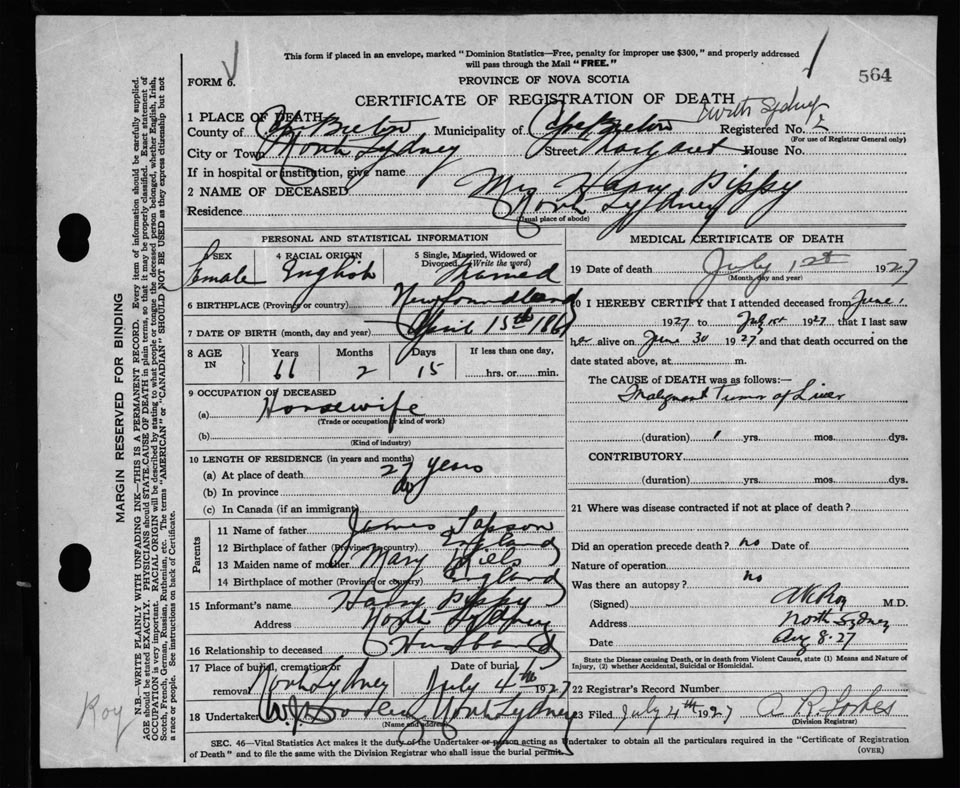 This form if placed in an envelope, marked "Dominion Statistics—Free, penalty for improper use $300," and properly addressed
will pass through the Mail "FREE."
564
FORM 6.
PROVINCE OF NOVA SCOTIA
CERTIFICATE OF REGISTRATION OF DEATH
North Sydney
1 PLACE OF DEATH
County of Cape Breton Municipality of Cape Breton Registered No.
(For use of Registrar General only)
City or Town North Sydney Street Margaret House No.
If in hospital or institution, give name
2 NAME OF DECEASED Mrs Harry Pippy
Residence North Sydney
(Usual place of abode)
PERSONAL AND STATISTICAL INFORMATION
SEX 4 RACIAL ORIGIN 5 Single, Married, Widowed or Divorced (Write the word)
Female English Married
6 BIRTHPLACE (Province or country) Newfoundland
7 DATE OF BIRTH (month, day and year) April 15th 186
8 AGE IN Years Months Days If less than one day,
66 2 15 hrs. or min.
9 OCCUPATION OF DECEASED
(a) Housewife
(Trade or occupation or kind of work)
(b)
(Kind of industry)
10 LENGTH OF RESIDENCE (in years and months)
(a) At place of death 27 years
(b) In province do
(c) In Canada (if an immigrant)
Parents
11 Name of father James
12 Birthplace of father (Province or country) England
13 Maiden name of mother Mary
14 Birthplace of mother (Province or country) England
15 Informant's name Harry Pippy
Address North Sydney
16 Relationship to deceased Husband
17 Place of burial, cremation or removal North Sydney Date of burial July 4th 1927
18 Undertaker North Sydney
(Name and address)
MEDICAL CERTIFICATE OF DEATH
19 Date of death July 1st 1927
(Month, day and year)
20 I HEREBY CERTIFY that I attended deceased from June 1
1927 to July 1st 1927 that I last saw
her alive on June 30 1927 and that death occurred on the
date stated above, at m.
The CAUSE of DEATH was as follows:—
Malignant Tumor of Liver
(duration) 1 yrs. mos. dys.
CONTRIBUTORY
(duration) yrs. mos. dys.
21 Where was disease contracted if not at place of death?
Did an operation precede death? no Date of
Nature of operation
Was there an autopsy? no
(Signed) Roy M.D.
Address North Sydney
Date Aug 8-27
State the Disease causing Death, or in death from Violent Causes, state (1) Means and Nature of
Injury, (2) whether Accidental, Suicidal or Homicidal.
22 Registrar's Record Number
23 Filed July 4th 1927 A. R. Forbes
(Division Registrar)
SEC. 46—Vital Statistics Act makes it the duty of the Undertaker or person acting as Undertaker to obtain all the particulars required in the "Certificate of Registration
of Death" and to file the same with the Division Registrar who shall issue the burial permit.
(OVER)
MARGIN RESERVED FOR BINDING
N.B.—WRITE PLAINLY WITH UNFADING INK—THIS IS A PERMANENT RECORD. Every item of information should be carefully supplied.
AGE should be stated EXACTLY. PHYSICIANS should STATE CAUSE OF DEATH in plain terms, so that it may be properly classified. Exact statement of
OCCUPATION is very important. RACIAL ORIGIN will be described by stating to what people or tongue the deceased person belonged, whether English, Irish,
Scotch, French, German, Russian, Ruthenian, etc. The terms "AMERICAN" or "CANADIAN" SHOULD NOT BE USED as they express citizenship but not
a race or people. See instructions on back of Certificate.
Roy